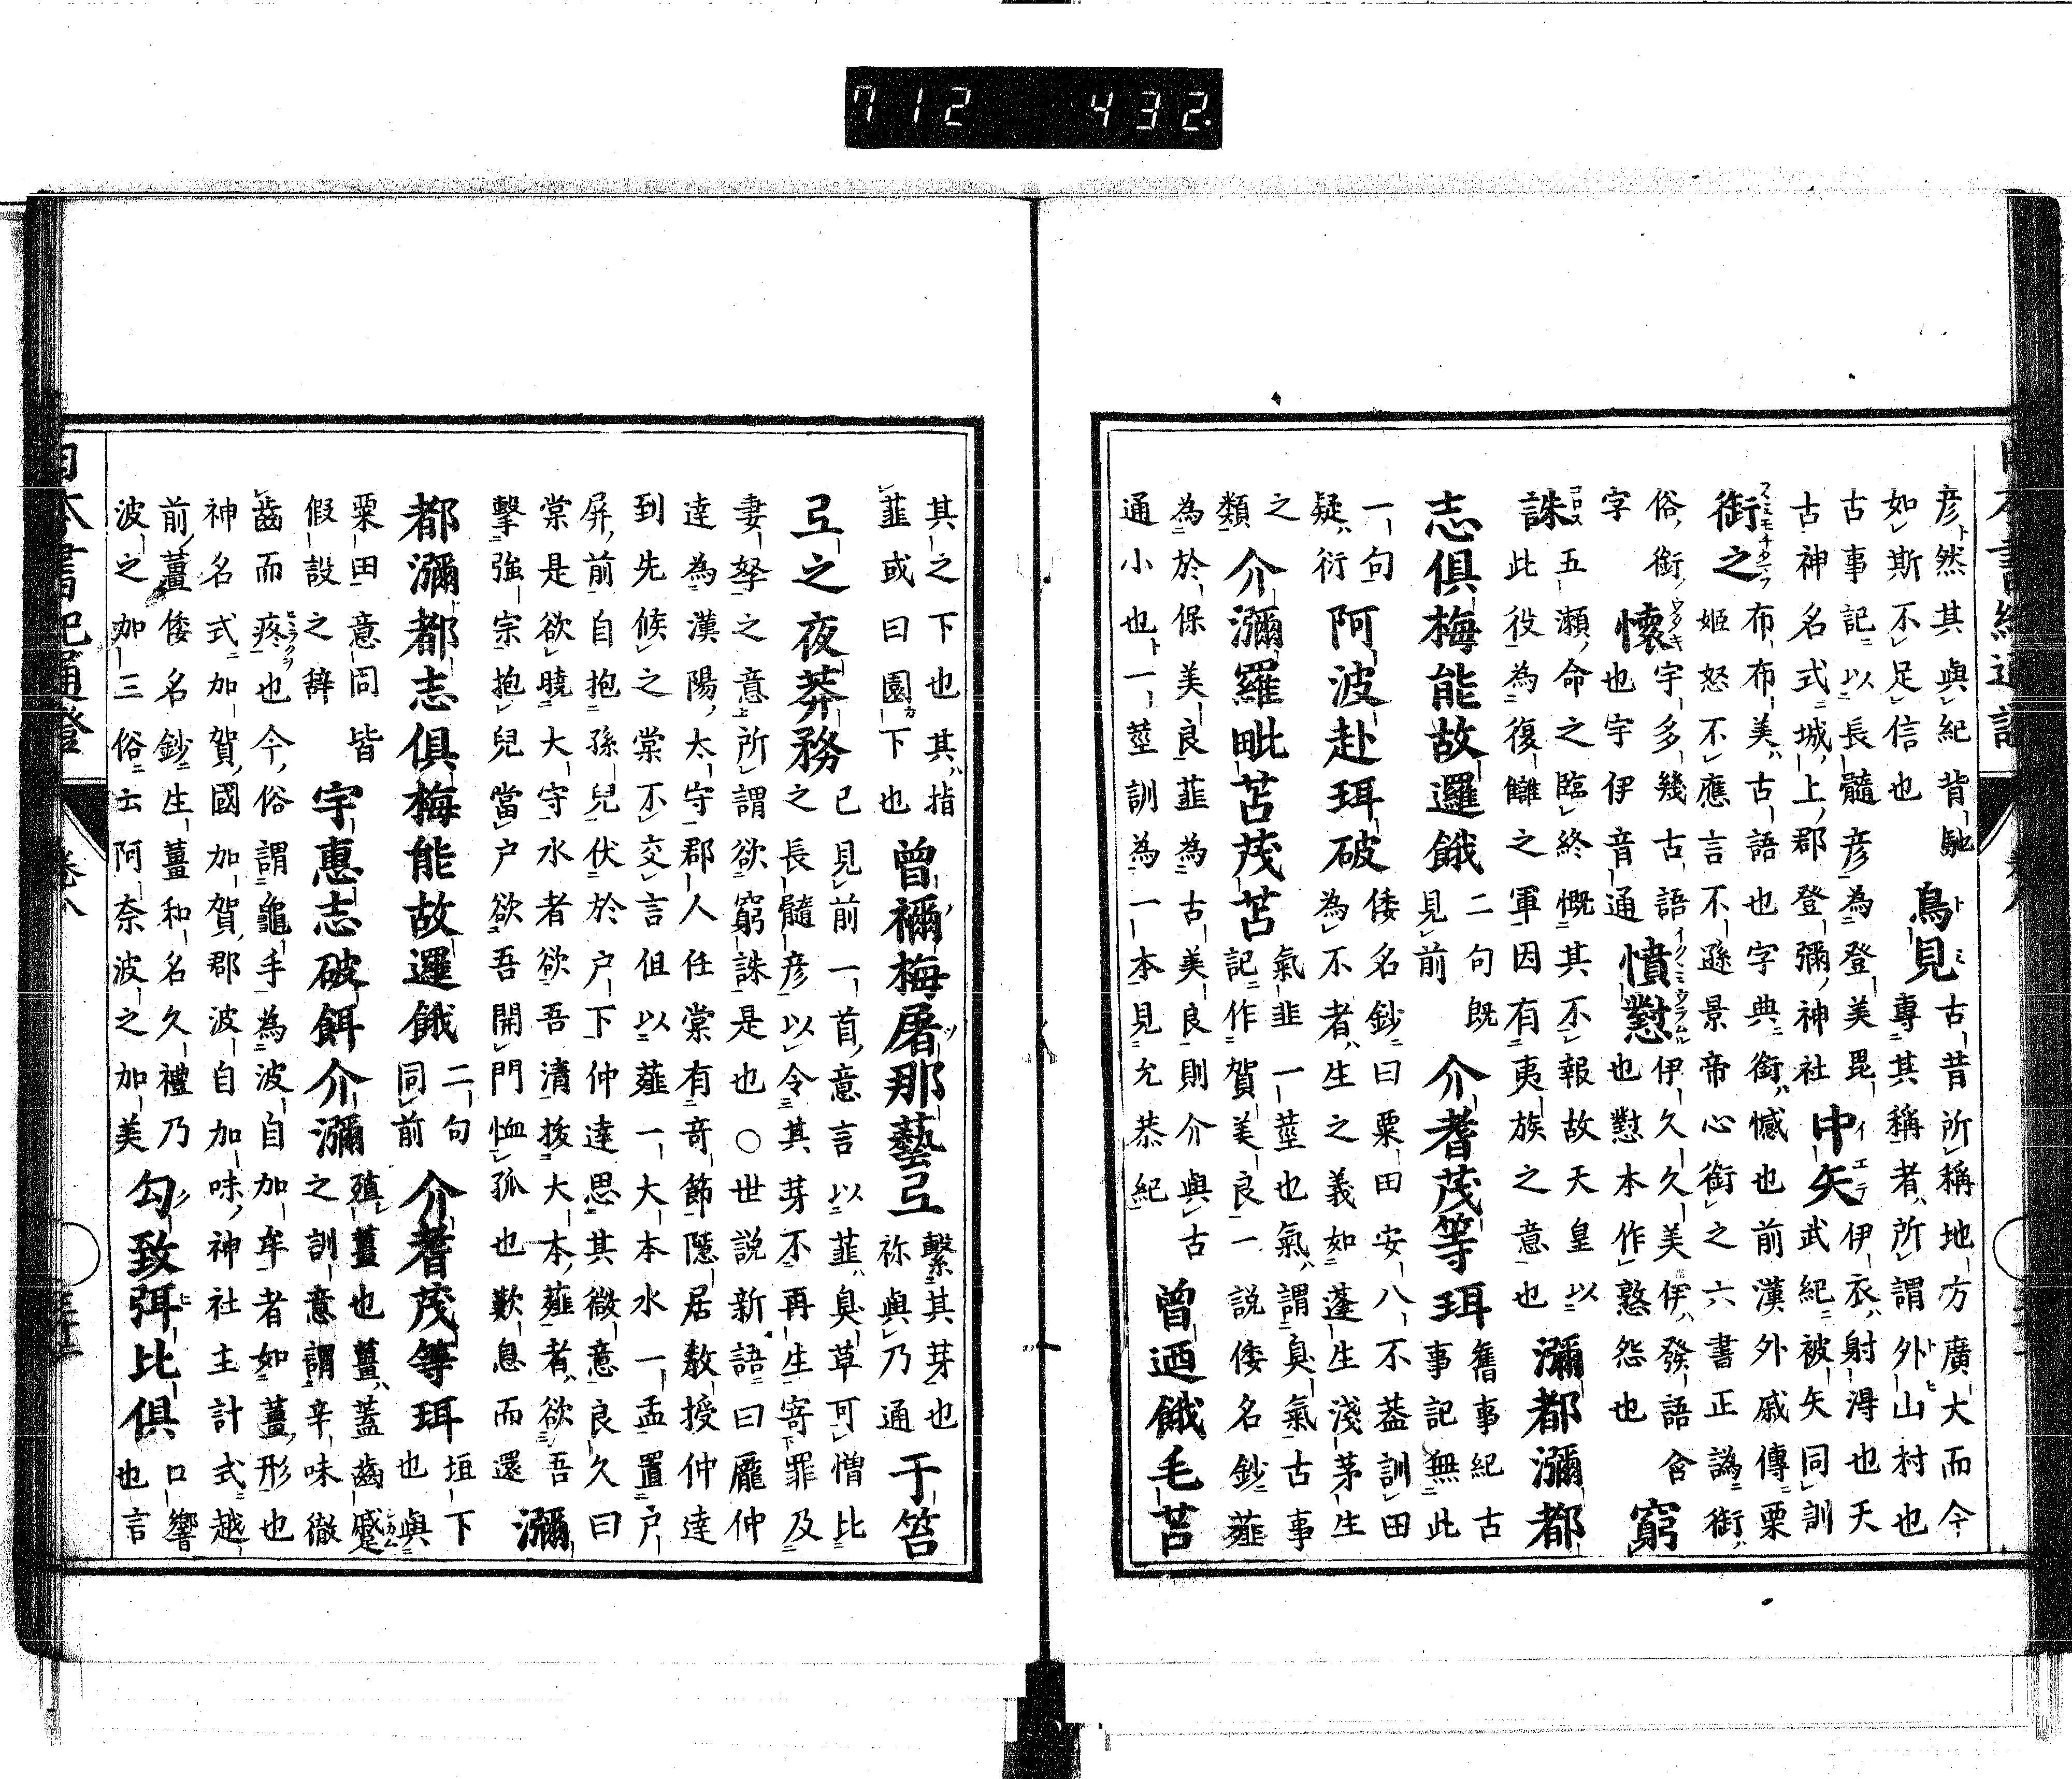 彦然其與紀背馳
如斯不足信也
鳥見
古昔所稱地方廣大而今
專其稱者所謂外山村也
古事記以長髓彦為登美毘
古神名式城上郡登彌神社
中矢
伊衣射淂也天
武紀被矢同訓
衘之
布布美古語也字典衘憾也前漢外戚傳栗
姬怒不應言不遜景帝心衘之六書正譌衘
俗銜
字
懷
宇多幾古語
也宇伊音通
憤懟
伊久久美伊發語含
也懟本作憝怨也
窮
誅
五瀬命之臨終慨其不報故天皇以
此役為復讎之軍因有夷族之意也
瀰都瀰都
志俱梅能故邏餓
二句既
見前
介耆茂等珥
舊事紀古
事記無此
一句
疑衍
阿波赴珥破
倭名鈔曰粟田安八不葢訓田
為不者生之義如蓬生淺茅生
之
類
介瀰羅毗苫茂苫
氣韭一莖也氣謂臭氣古事
記作賀美良一說倭名鈔薤
為於保美良韮為古美良則介與古
通小也一莖訓為一本見允恭紀
曾廼餓毛苫
其之下也其指
韮或曰園下也
曾禰梅屠那藝弖
繫其芽也
祢與乃通
于笞
弖之夜莽務
已見前一首意言以韮臭草可憎比
之長髓彦以令其芽不再生寄罪及
妻孥之意所謂欲窮誅是也○世說新語曰龐仲
達為漢陽太守郡人任棠有奇節隱居教授仲達
到先候之棠不交言但以薤一大本水一盂置户
屏前自抱孫兒伏於户下仲達思其微意良久曰
棠是欲曉大守水者欲吾清拔大本薤者欲吾
擊強宗抱兒當户欲吾開門恤孤也歎息而還
瀰
都瀰都志俱梅能故邏餓
二句
同前
介耆茂等珥
垣下
也與
粟田意同皆
假設之辭
宇惠志破餌介瀰
殖薑也薑葢齒蹙
之訓意謂辛味徹
齒而疼也今俗謂龜手為波自加牟者如薑形也
神名式加賀國加賀郡波自加味神社主計式越
前薑倭名鈔生薑和名久禮乃
波之加三俗云阿奈波之加美
勾致弭比俱
口響
也言
日本書紀通證
卷八
712 432